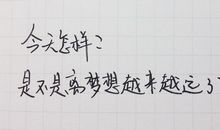 今天怎样：
是不是离梦想越来越远了